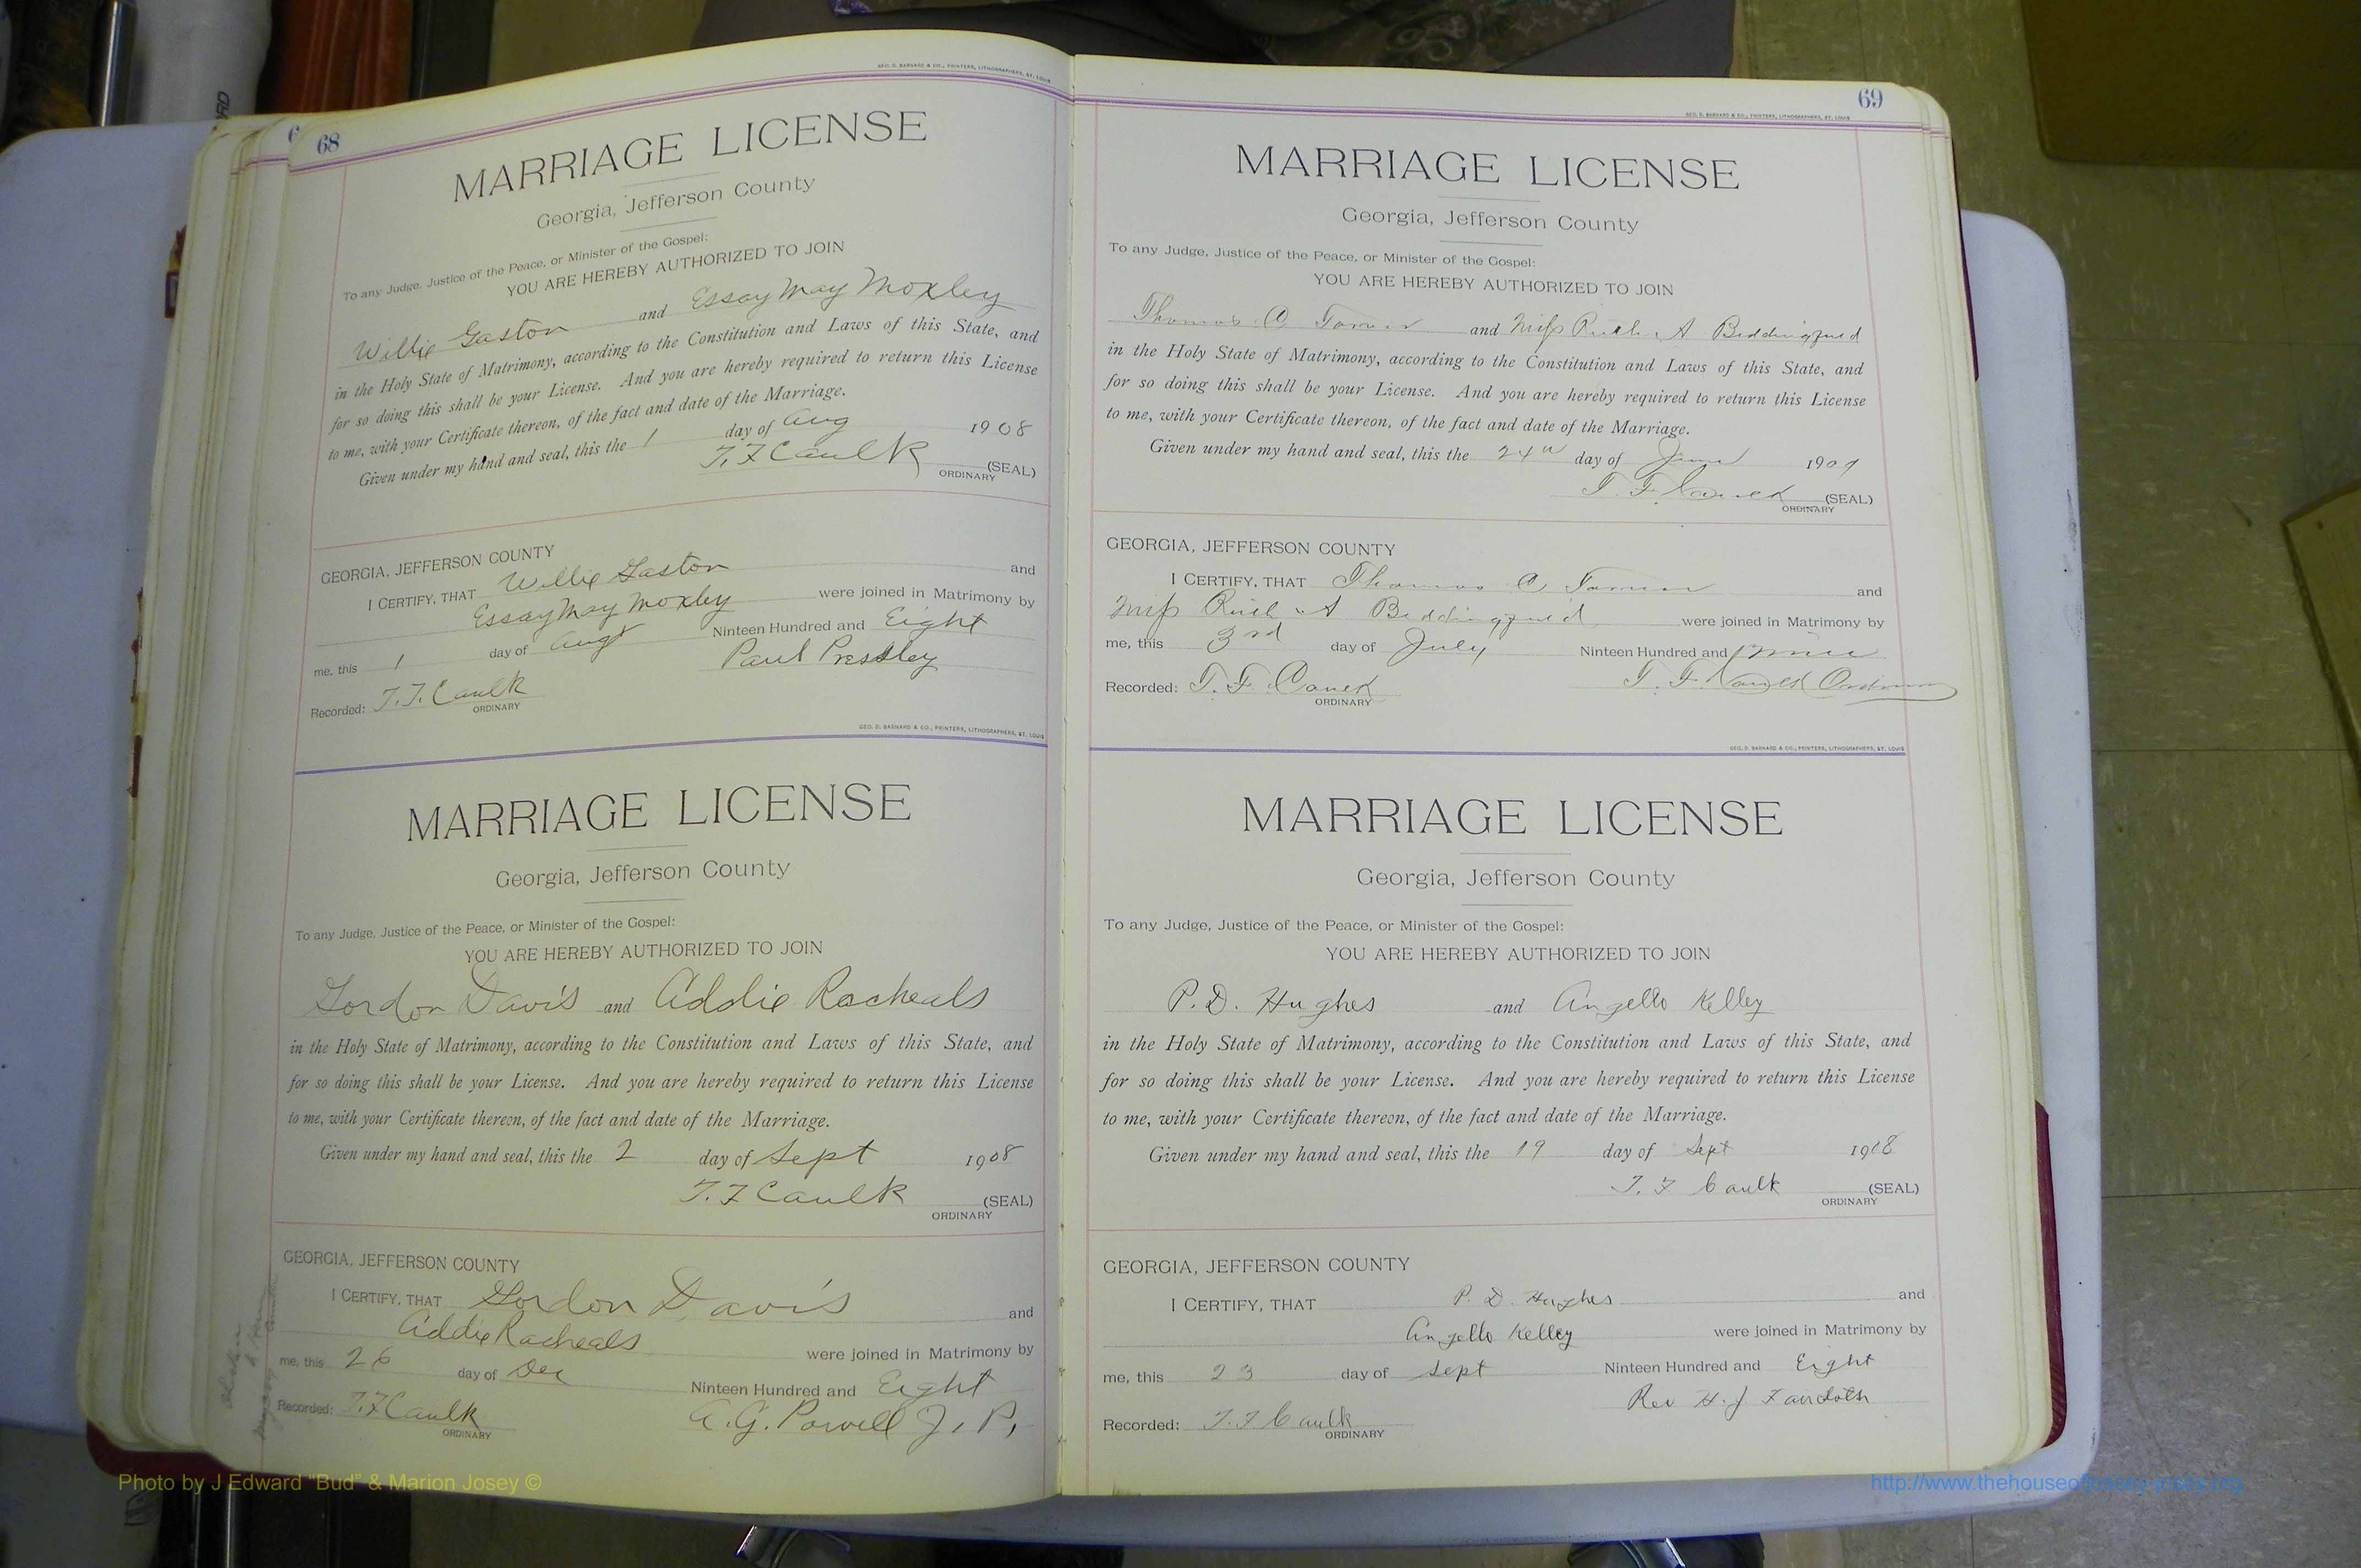 GEO. D. BARNARD & CO., PRINTERS, LITHOGRAPHERS, ST. LOUIS
68
MARRIAGE LICENSE
Georgia, Jefferson County
To any Judge, Justice of the Peace, or Minister of the Gospel:
YOU ARE HEREBY AUTHORIZED TO JOIN
Willie Gaston and Essay May Moxley
in the Holy State of Matrimony, according to the Constitution and Laws of this State, and
for so doing this shall be your License. And you are hereby required to return this License
to me, with your Certificate thereon, of the fact and date of the Marriage.
Given under my hand and seal, this the 1 day of Aug 1908
T. F Caulk (SEAL)
ORDINARY
GEORGIA, JEFFERSON COUNTY
I CERTIFY, THAT Willie Gaston and
Essay May Moxley were joined in Matrimony by
me, this 1 day of Augt Ninteen Hundred and Eight
Paul Pressley
Recorded: T. F. Caulk
ORDINARY
GEO. D. BARNARD & CO., PRINTERS, LITHOGRAPHERS, ST. LOUIS
MARRIAGE LICENSE
Georgia, Jefferson County
To any Judge, Justice of the Peace, or Minister of the Gospel:
YOU ARE HEREBY AUTHORIZED TO JOIN
Gordon Davis and Addie Racheals
in the Holy State of Matrimony, according to the Constitution and Laws of this State, and
for so doing this shall be your License. And you are hereby required to return this License
to me, with your Certificate thereon, of the fact and date of the Marriage.
Given under my hand and seal, this the 2 day of Sept 1908
T. F Caulk (SEAL)
ORDINARY
GEORGIA, JEFFERSON COUNTY
I CERTIFY, THAT Gordon Davis and
Addie Racheals were joined in Matrimony by
me, this 26 day of Dec Ninteen Hundred and Eight
Recorded: T. F Caulk A. G. Powell J. P.
ORDINARY
69
GEO. D. BARNARD & CO., PRINTERS, LITHOGRAPHERS, ST. LOUIS
MARRIAGE LICENSE
Georgia, Jefferson County
To any Judge, Justice of the Peace, or Minister of the Gospel:
YOU ARE HEREBY AUTHORIZED TO JOIN
Thomas and Miss Ruth A Beddingfield
in the Holy State of Matrimony, according to the Constitution and Laws of this State, and
for so doing this shall be your License. And you are hereby required to return this License
to me, with your Certificate thereon, of the fact and date of the Marriage.
Given under my hand and seal, this the 24th day of June 1909
T. F. Caulk (SEAL)
ORDINARY
GEORGIA, JEFFERSON COUNTY
I CERTIFY, THAT Thomas and
Miss Ruth A Beddingfield were joined in Matrimony by
me, this 3rd day of July Ninteen Hundred and nine
Recorded: T. F. Caulk T. F. Caulk Ordinary
ORDINARY
GEO. D. BARNARD & CO., PRINTERS, LITHOGRAPHERS, ST. LOUIS
MARRIAGE LICENSE
Georgia, Jefferson County
To any Judge, Justice of the Peace, or Minister of the Gospel:
YOU ARE HEREBY AUTHORIZED TO JOIN
P. D. Hughes and Angello Kelley
in the Holy State of Matrimony, according to the Constitution and Laws of this State, and
for so doing this shall be your License. And you are hereby required to return this License
to me, with your Certificate thereon, of the fact and date of the Marriage.
Given under my hand and seal, this the 19 day of Sept 1908
T. F Caulk (SEAL)
ORDINARY
GEORGIA, JEFFERSON COUNTY
I CERTIFY, THAT P. D. Hughes and
Angello Kelley were joined in Matrimony by
me, this 23 day of Sept Ninteen Hundred and Eight
Rev H. J.
Recorded: T. F Caulk
ORDINARY
Photo by J Edward "Bud" & Marion Josey ©